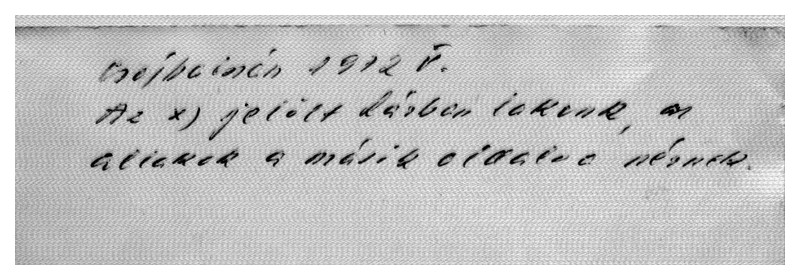 1912 V.
Az x) jelölt házban lakunk, az
ablakok a másik oldalra néznek.